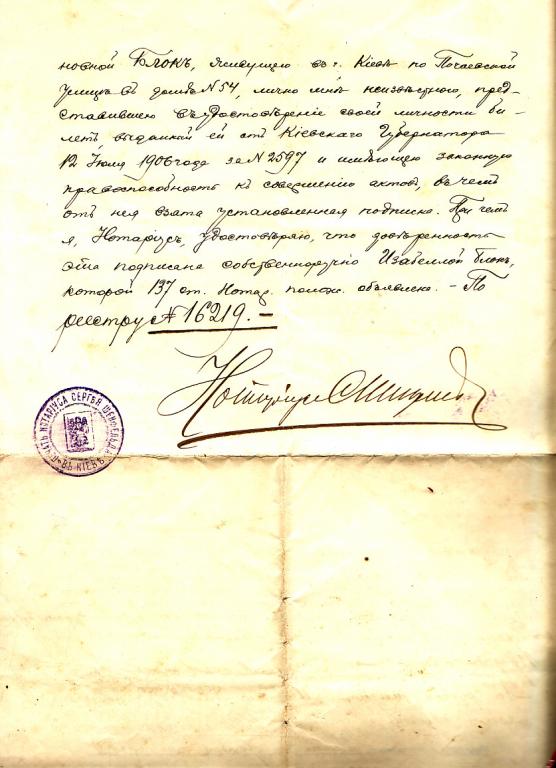 новной Блокъ, живущею въ г. Кіевѣ по Почаевской
улицѣ въ домѣ № 54, лично мнѣ неизвѣстною, пред-
ставившею въ удостовѣреніе своей личности би-
летъ, выданный ей отъ Кіевскаго Губернатора
12 Іюля 1906 года за № 2597 и имѣющею законную
правоспособность къ совершенію актовъ, въ чемъ
отъ нея взята установленная подписка. При чемъ
я, Нотаріусъ, удостовѣряю, что довѣренность
эта подписана собственноручно Изабеллой Блокъ,
которой 137 ст. Нотар. полож. объявлена. – По
реестру № 16219. –
Нотаріусъ
ПЕЧАТЬ НОТАРІУСА СЕРГѢЯ
ВЪ КІЕВѢ